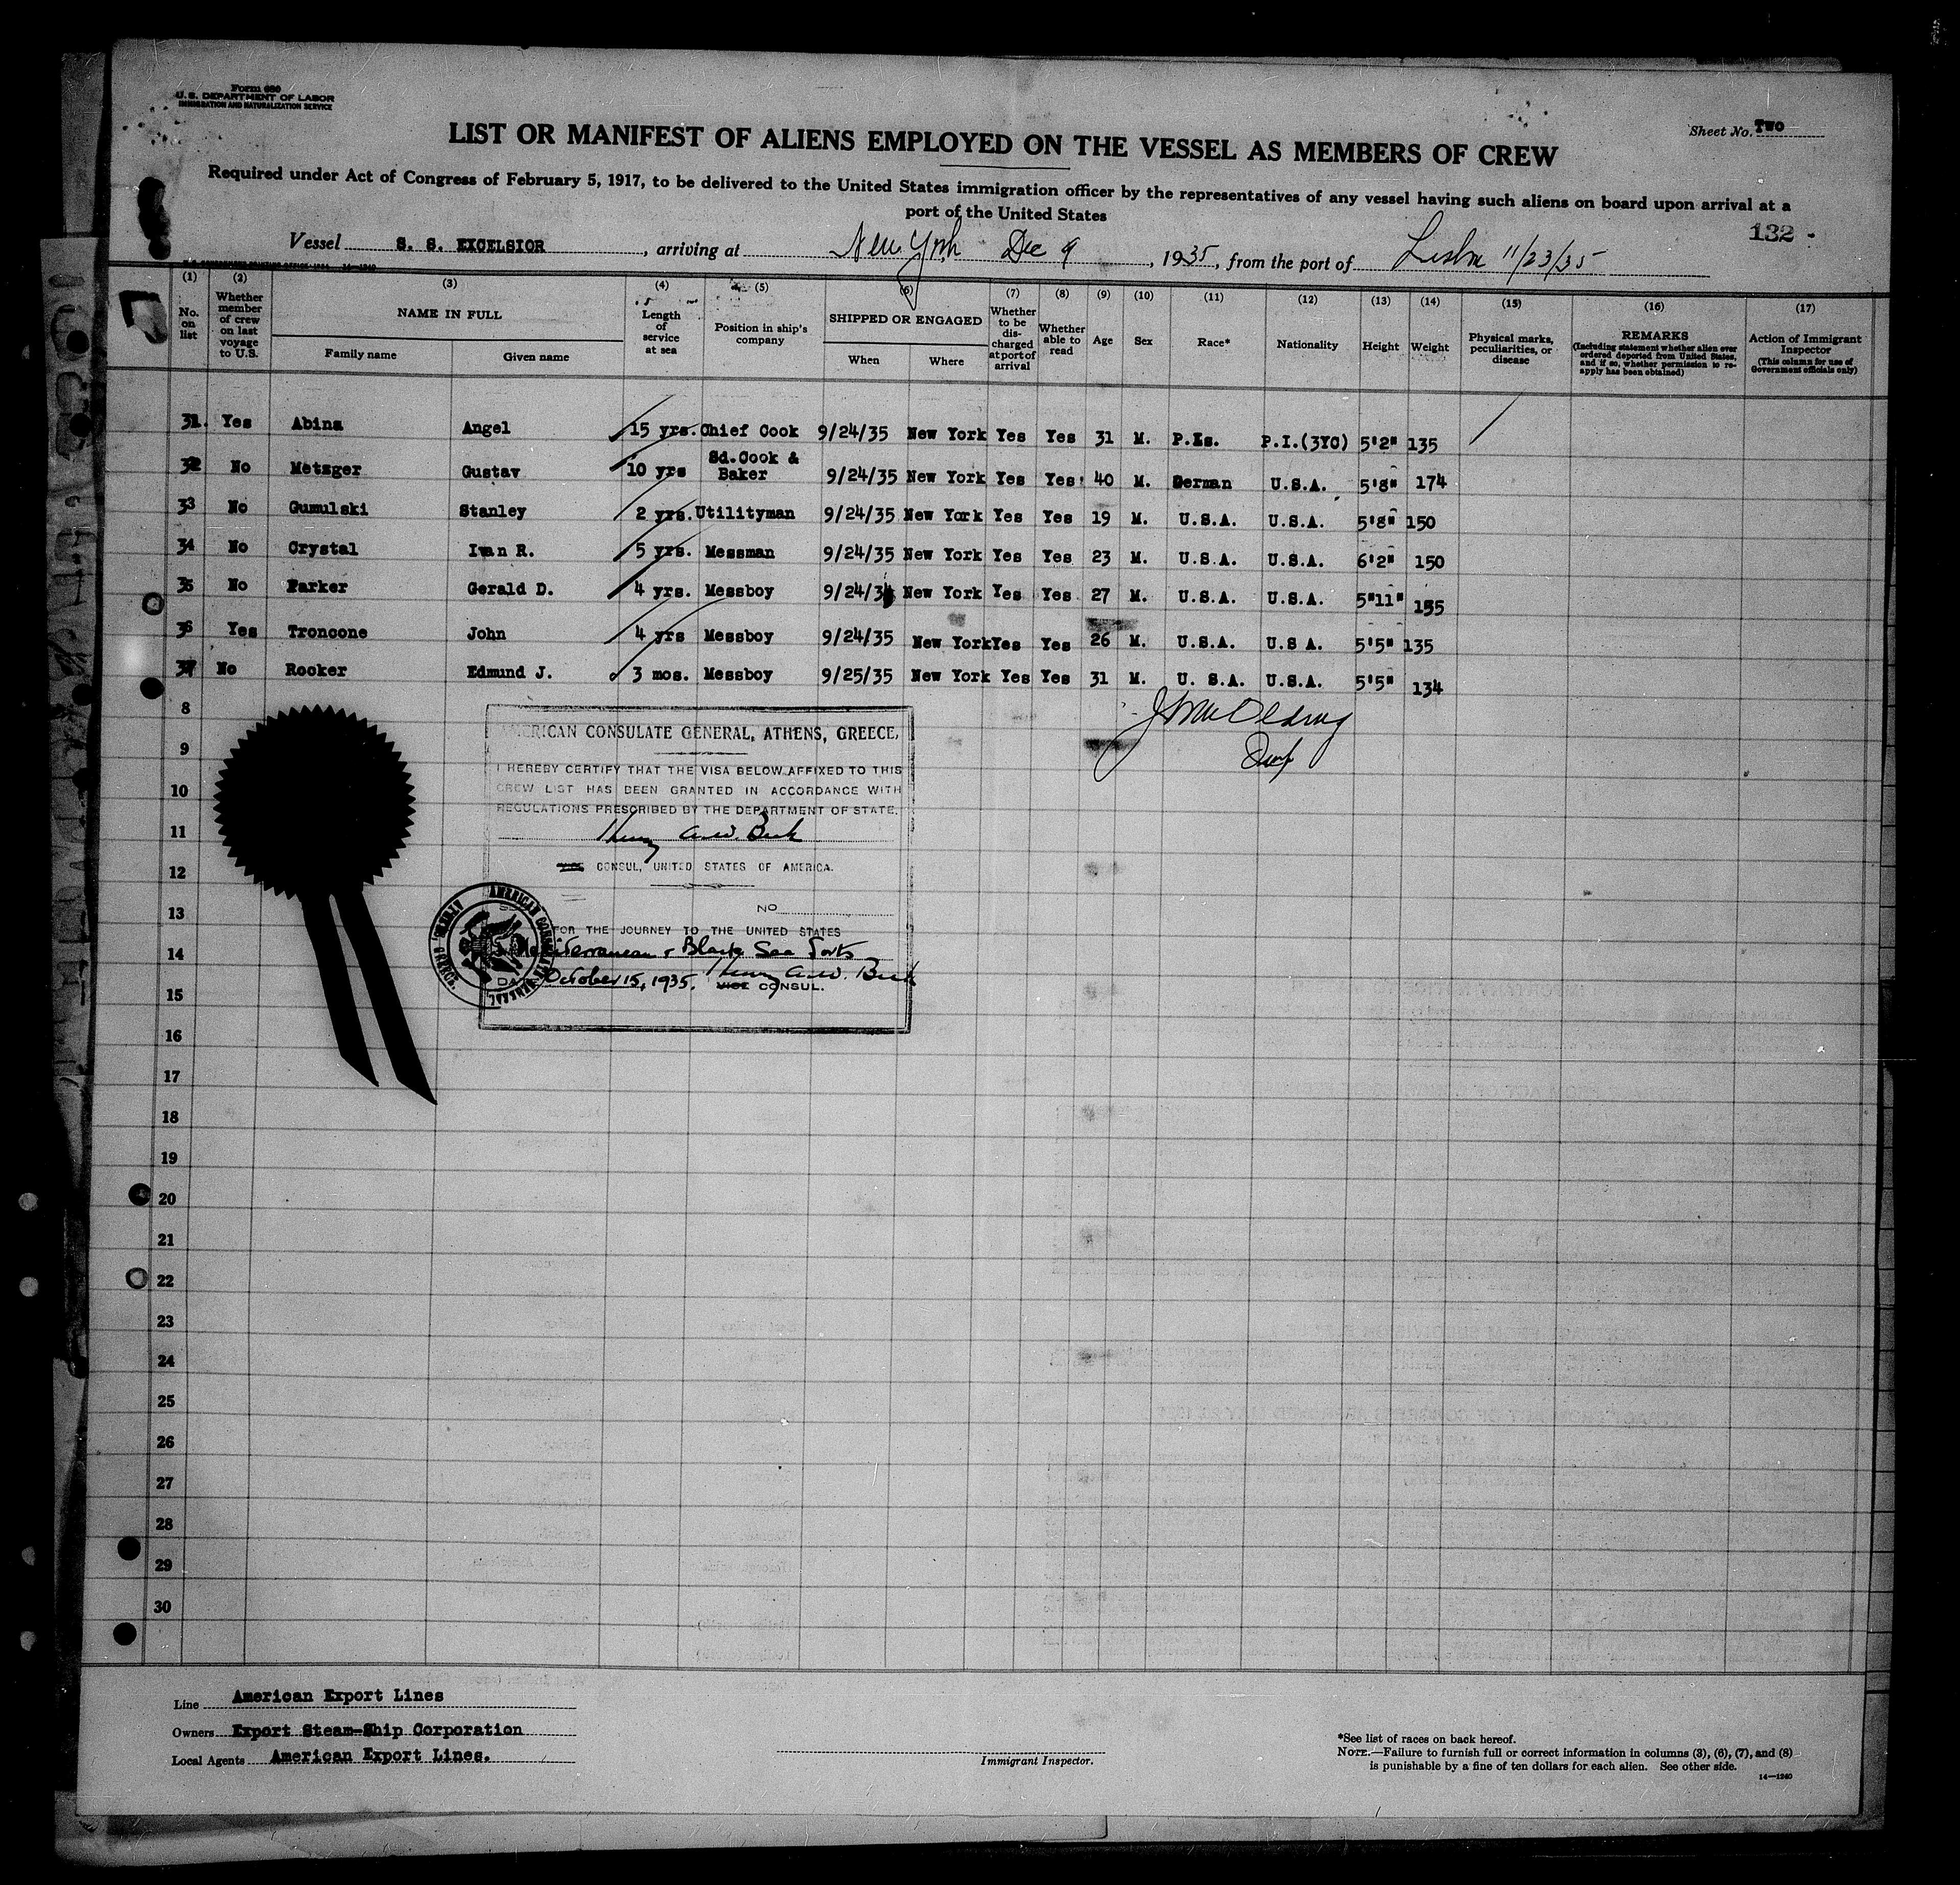 Form 680
U. S. DEPARTMENT OF LABOR
IMMIGRATION AND NATURALIZATION SERVICE
Sheet No. Two
LIST OR MANIFEST OF ALIENS EMPLOYED ON THE VESSEL AS MEMBERS OF CREW
Required under Act of Congress of February 5, 1917, to be delivered to the United States immigration officer by the representatives of any vessel having such aliens on board upon arrival at a
port of the United States
132
Vessel S. S. EXCELSIOR, arriving at New York Dec 9, 1935, from the port of Lisbn 11/23/35
(1) (2) (3) (4) (5) (6) (7) (8) (9) (10) (11) (12) (13) (14) (15) (16) (17)
No. on list
Whether member of crew on last voyage to U.S.
NAME IN FULL
Family name
Given name
Length of service at sea
Position in ship's company
SHIPPED OR ENGAGED
When
Where
Whether to be discharged at port of arrival
Whether able to read
Age
Sex
Race*
Nationality
Height
Weight
Physical marks, peculiarities, or disease
REMARKS
(Including statement whether alien ever ordered deported from United States, and if so, whether permission to reapply has been obtained)
Action of Immigrant Inspector
(This column for use of Government officials only)
31. Yes Abina Angel 15 yrs. Chief Cook 9/24/35 New York Yes Yes 31 M. P.Is. P.I.(3YC) 5'2" 135
32 No Metzger Gustav 10 yrs Sd.Cook & Baker 9/24/35 New York Yes Yes 40 M. German U.S.A. 5'8" 174
33 No Gumulski Stanley 2 yrs. Utilityman 9/24/35 New York Yes Yes 19 M. U.S.A. U.S.A. 5'8" 150
34 No Crystal Ivan R. 5 yrs. Messman 9/24/35 New York Yes Yes 23 M. U.S.A. U.S.A. 6'2" 150
35 No Parker Gerald D. 4 yrs. Messboy 9/24/34 New York Yes Yes 27 M. U.S.A. U.S.A. 5"11" 155
36 Yes Troncone John 4 yrs Messboy 9/24/35 New York Yes Yes 26 M. U.S.A. U.S A. 5'5" 135
37 No Rooker Edmund J. 3 mos. Messboy 9/25/35 New York Yes Yes 31 M. U. S.A. U.S.A. 5'5" 134
8
9
10
11
12
13
14
15
16
17
18
19
20
21
22
23
24
25
26
27
28
29
30
AMERICAN CONSULATE GENERAL, ATHENS, GREECE,
I HEREBY CERTIFY THAT THE VISA BELOW AFFIXED TO THIS
CREW LIST HAS BEEN GRANTED IN ACCORDANCE WITH
REGULATIONS PRESCRIBED BY THE DEPARTMENT OF STATE.
Henry A.W. Beck
VICE CONSUL, UNITED STATES OF AMERICA.
NO
FOR THE JOURNEY TO THE UNITED STATES
Mediterranean & Black Sea Ports
DATE October 15, 1935. Henry A.W. Beck
VICE CONSUL.
AMERICAN CONSULATE GENERAL ATHENS, GREECE.
Line American Export Lines
Owners Export Steam-Ship Corporation
Local Agents American Export Lines.
Immigrant Inspector.
*See list of races on back hereof.
NOTE.—Failure to furnish full or correct information in columns (3), (6), (7), and (8)
is punishable by a fine of ten dollars for each alien. See other side.
14—1240